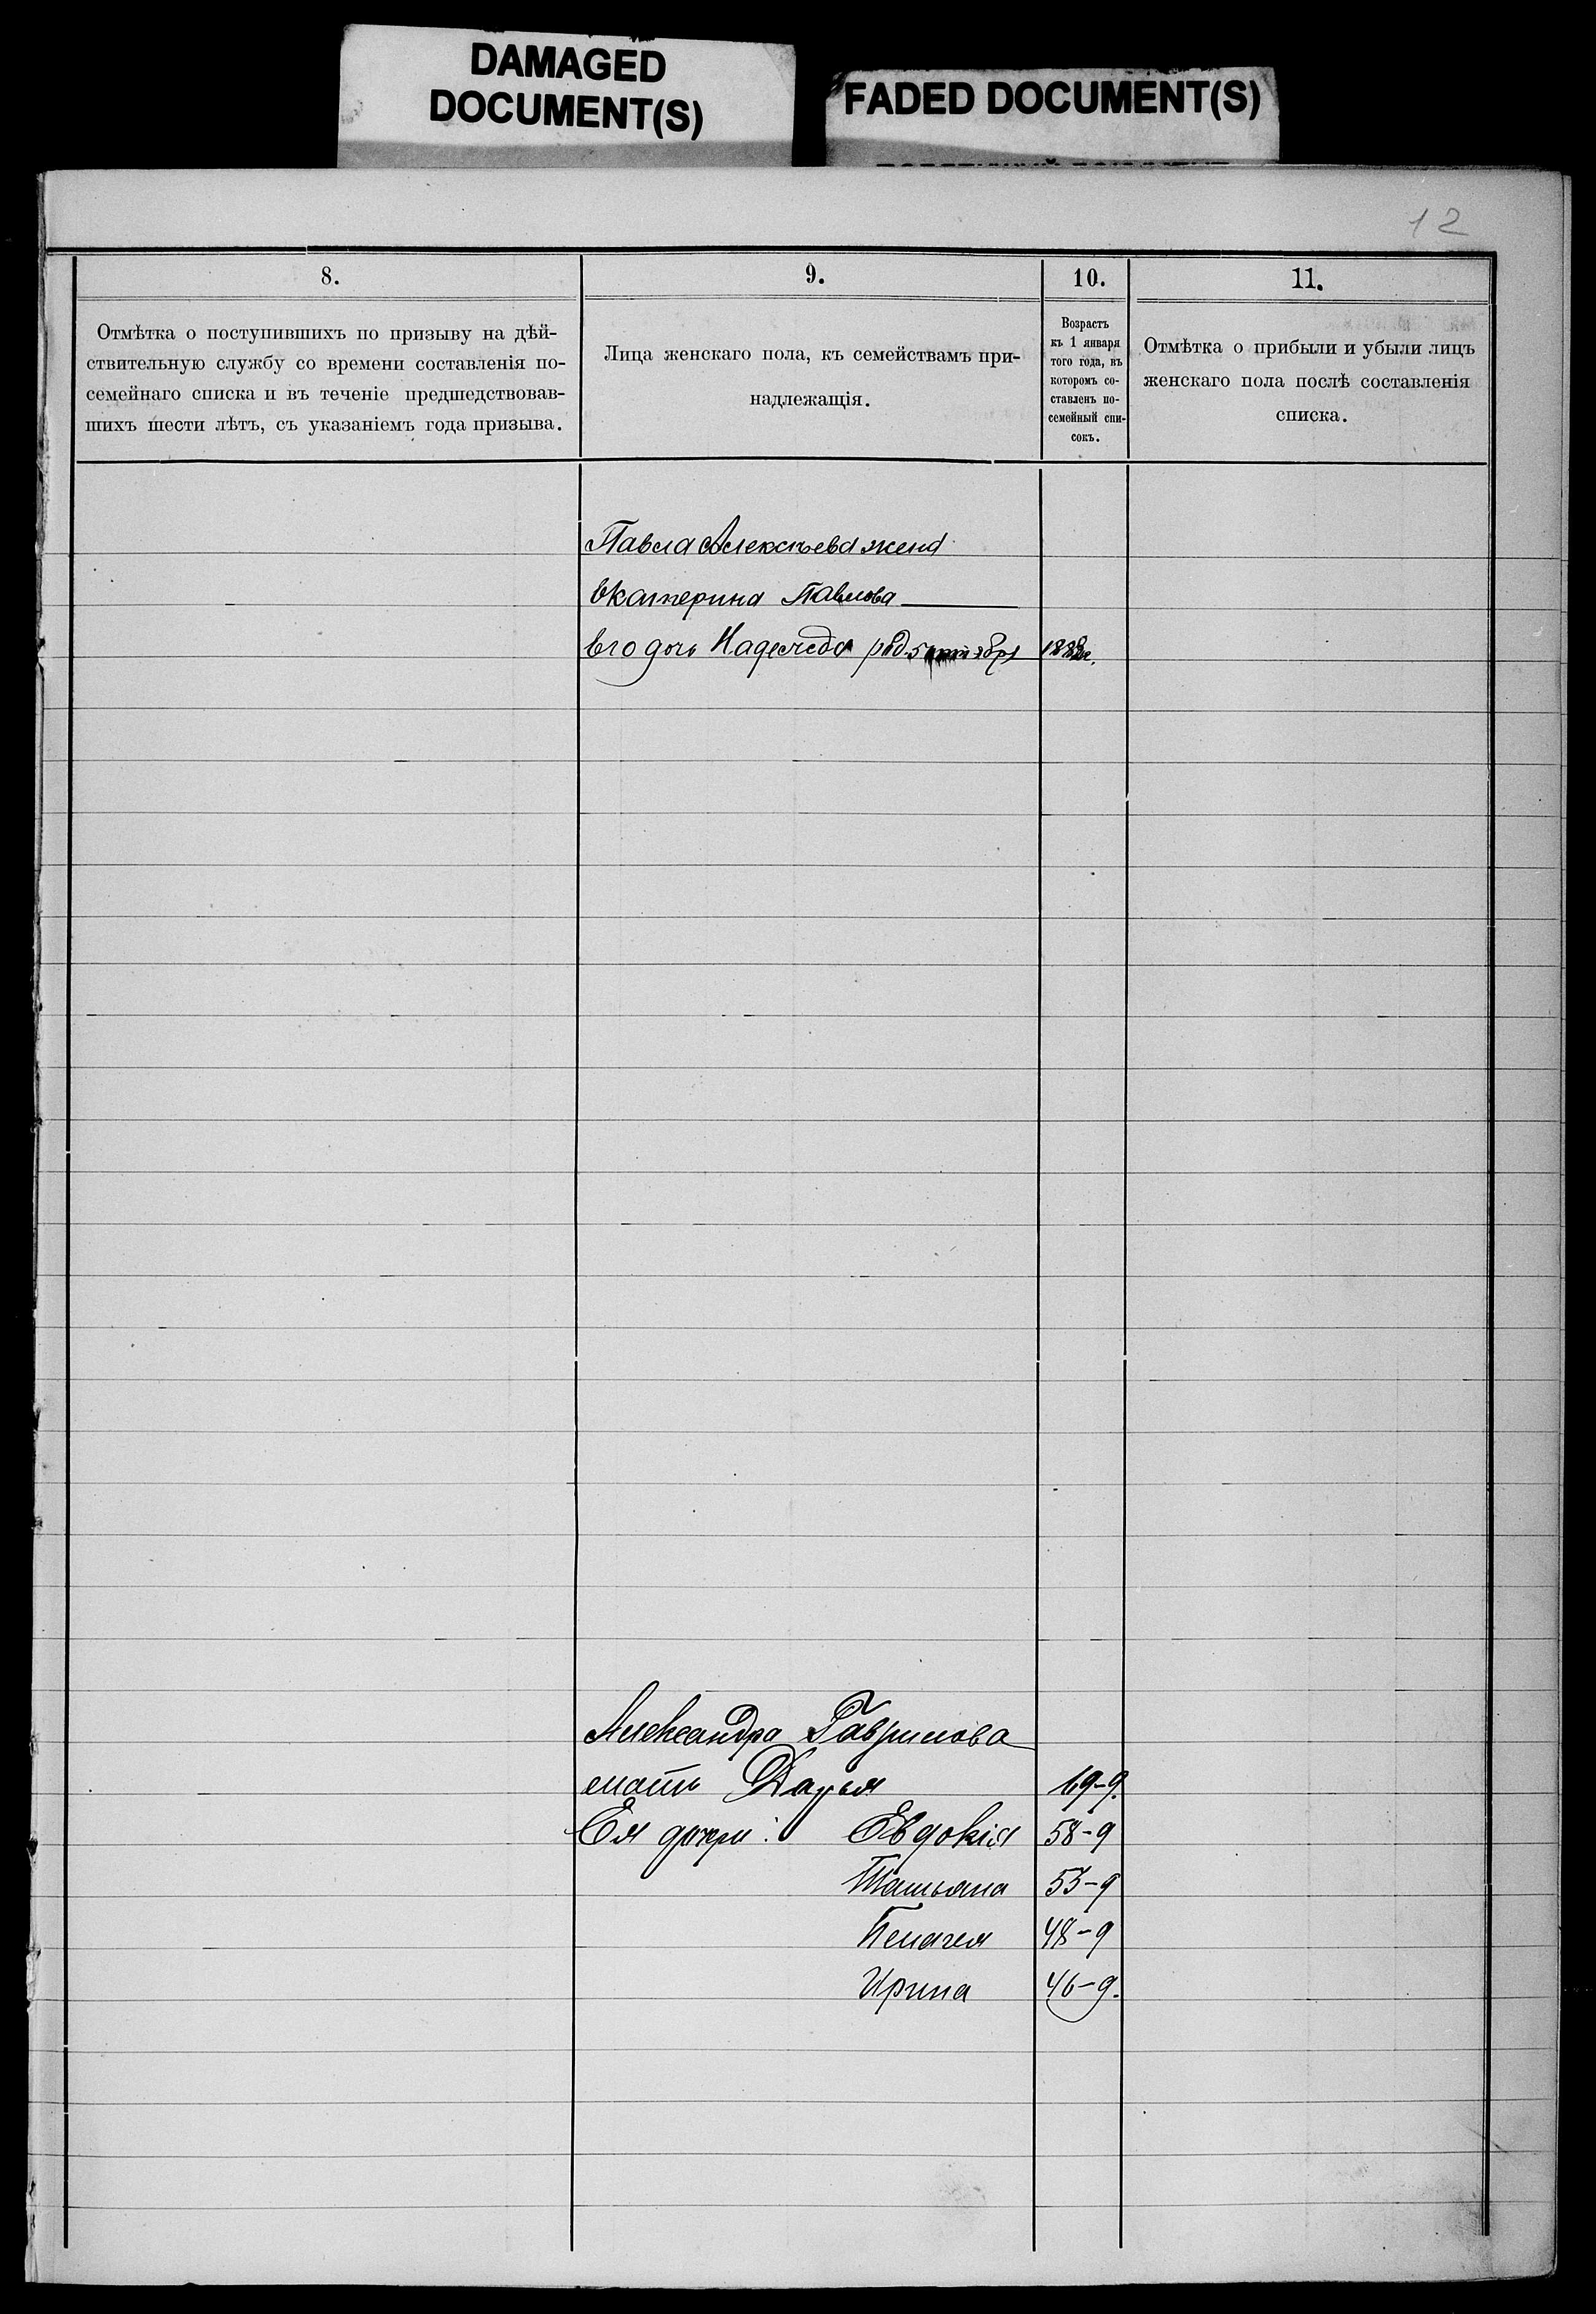 DAMAGED
DOCUMENT(S)
FADED DOCUMENT(S)
12
8.
9.
10.
11.
Отмѣтка о поступившихъ по призыву на дѣй-
ствительную службу со времени составленія по-
семейнаго списка и въ теченіе предшедствовав-
шихъ шести лѣтъ, съ указаніемъ года призыва.
Лица женскаго пола, къ семействамъ при-
надлежащія.
Возрастъ
къ 1 января
того года, въ
которомъ со-
ставленъ по-
семейный спи-
сокъ.
Отмѣтка о прибыли и убыли лицъ
женскаго пола послѣ составленія
списка.
Павла Алексѣева жена
Екатерина Павлова
Его дочь Надежда род. 5
Александра Гаврилова
мать Дарья 69-9.
Ея дочери: Евдокія 58-9
Татьяна 53-9
Пелагея 48-9
Ирина 46-9.